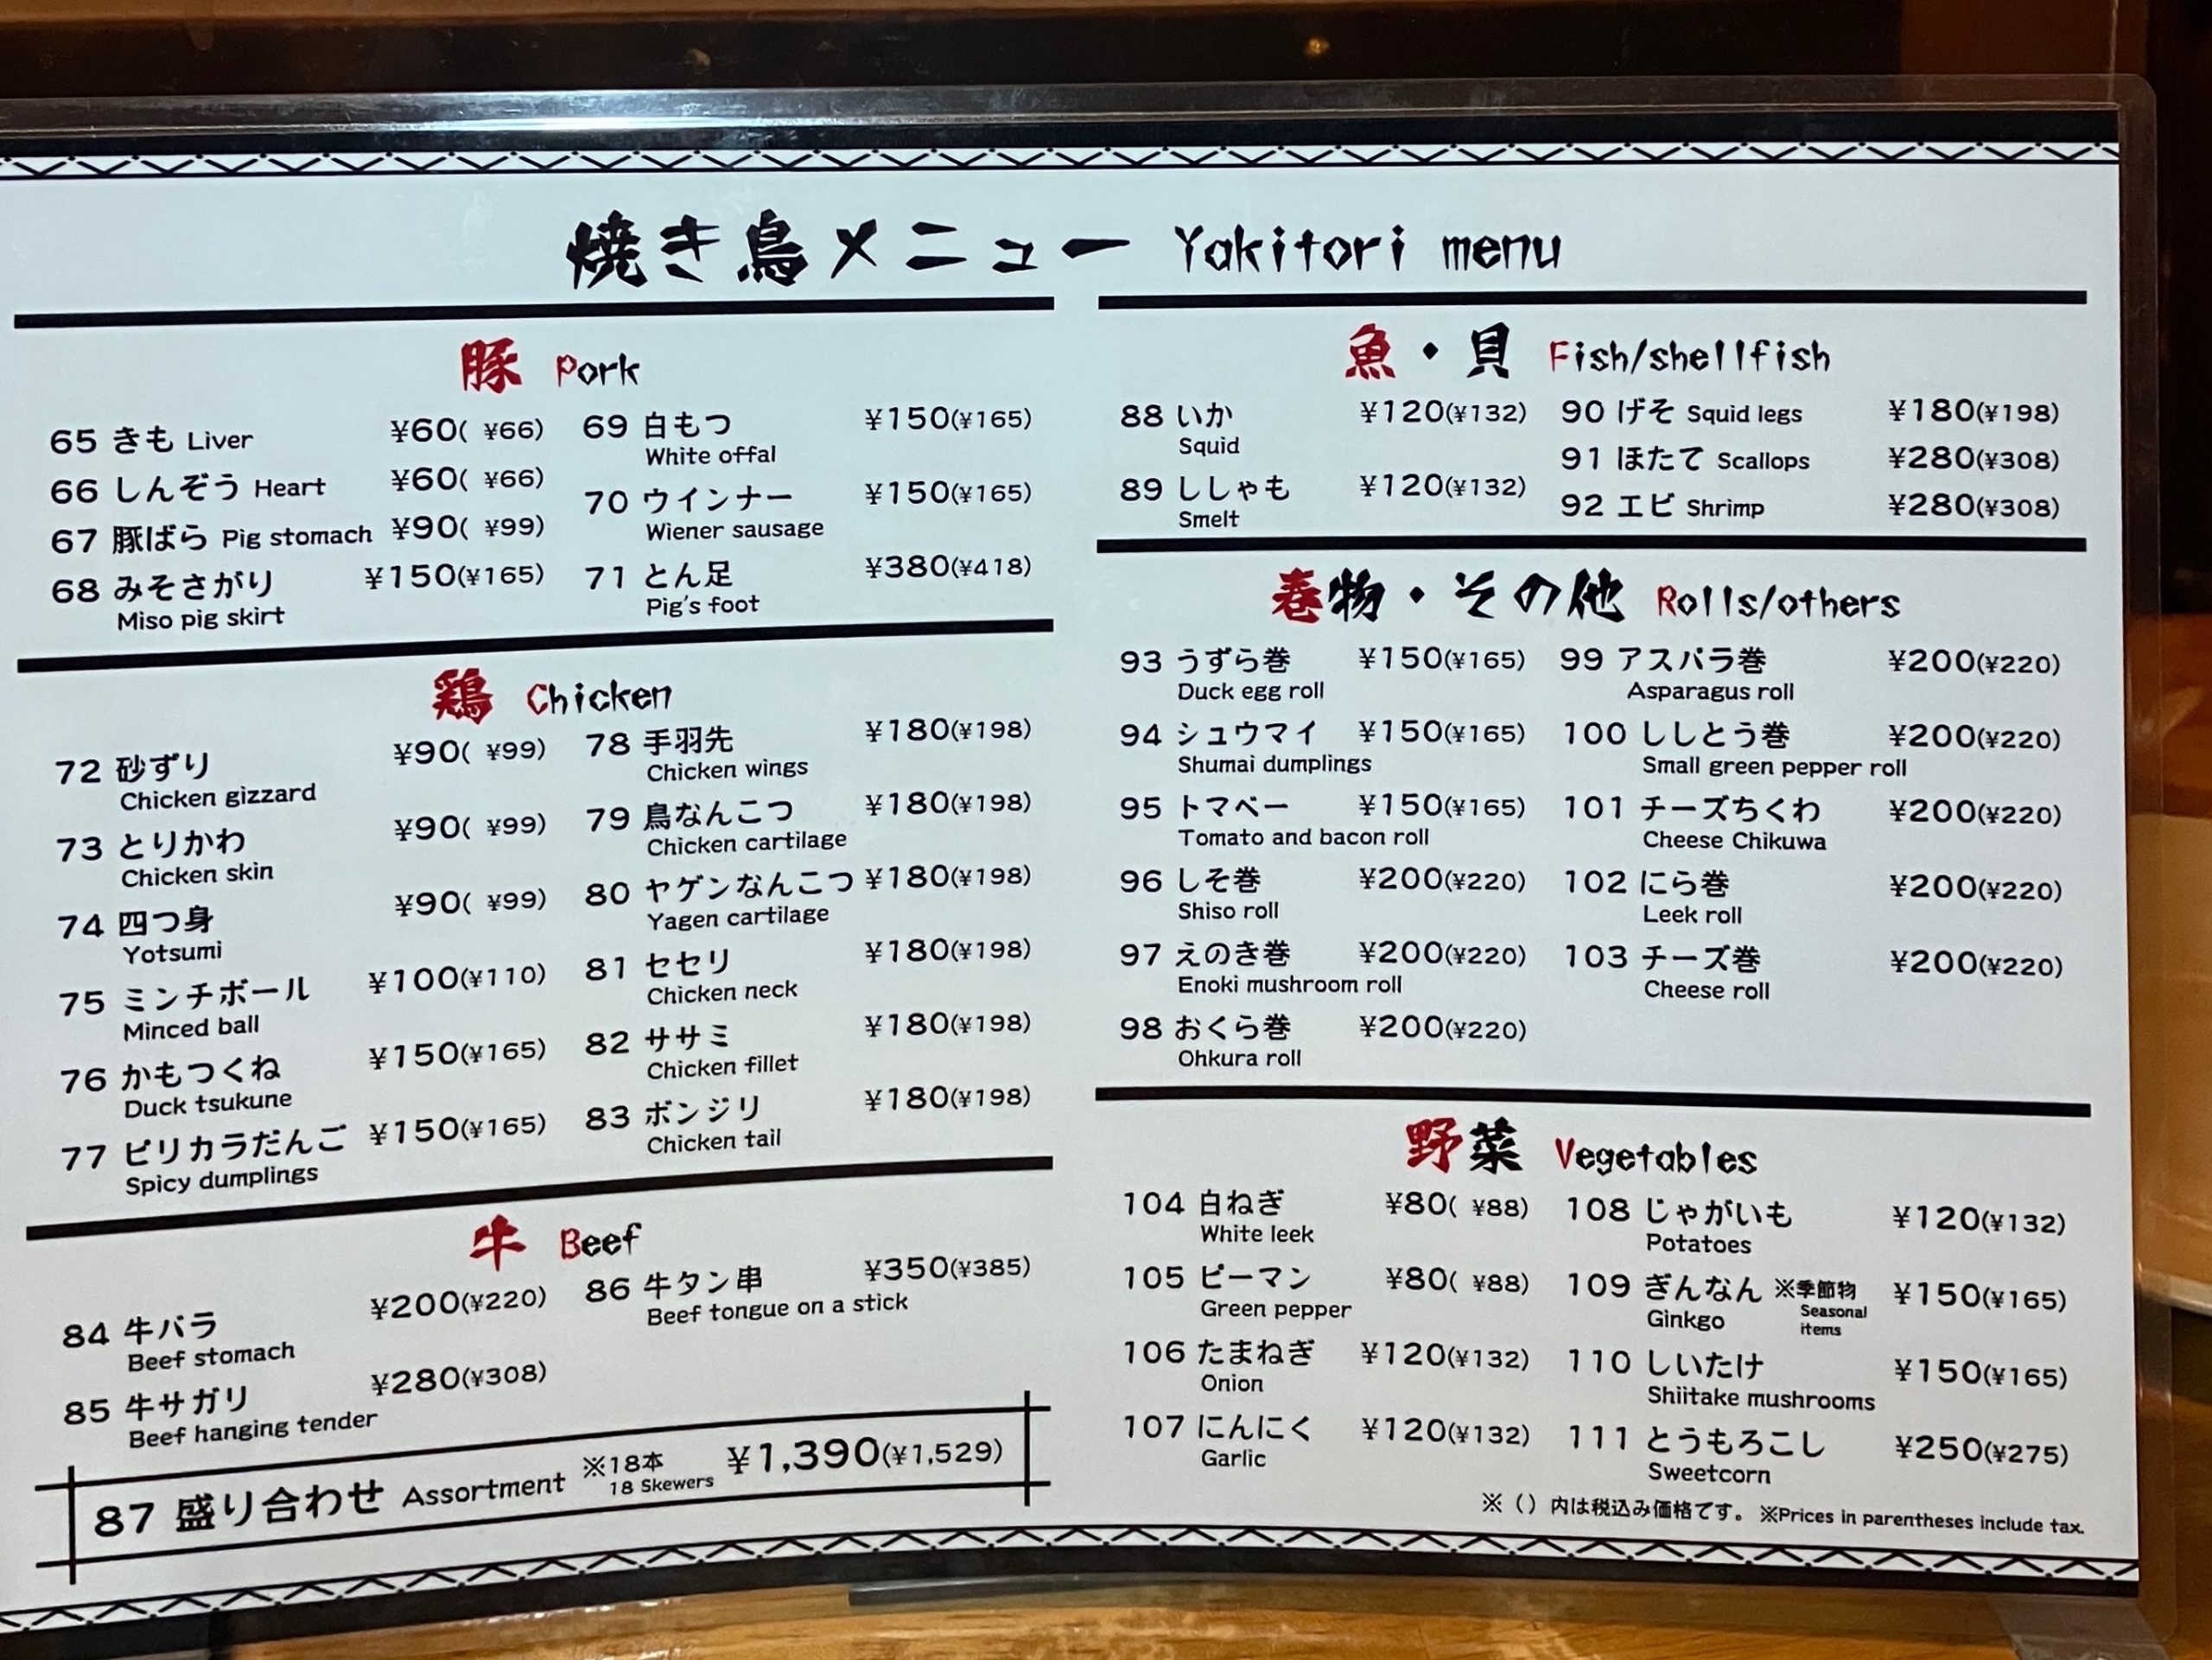 焼き鳥メニュー Yakitori menu
豚 Pork
65 きも Liver ¥60( ¥66)
66 しんぞう Heart ¥60( ¥66)
67 豚ばら Pig stomach ¥90( ¥99)
68 みそさがり ¥150(¥165)
Miso pig skirt
69 白もつ ¥150(¥165)
White offal
70 ウインナー ¥150(¥165)
Wiener sausage
71 とん足 ¥380(¥418)
Pig's foot
鶏 Chicken
72 砂ずり ¥90( ¥99)
Chicken gizzard
73 とりかわ ¥90( ¥99)
Chicken skin
74 四つ身 ¥90( ¥99)
Yotsumi
75 ミンチボール ¥100(¥110)
Minced ball
76 かもつくね ¥150(¥165)
Duck tsukune
77 ピリカラだんご ¥150(¥165)
Spicy dumplings
78 手羽先 ¥180(¥198)
Chicken wings
79 鳥なんこつ ¥180(¥198)
Chicken cartilage
80 ヤゲンなんこつ ¥180(¥198)
Yagen cartilage
81 セセリ ¥180(¥198)
Chicken neck
82 ササミ ¥180(¥198)
Chicken fillet
83 ボンジリ ¥180(¥198)
Chicken tail
牛 Beef
84 牛バラ ¥200(¥220)
Beef stomach
85 牛サガリ ¥280(¥308)
Beef hanging tender
86 牛タン串 ¥350(¥385)
Beef tongue on a stick
87 盛り合わせ Assortment ※18本 ¥1,390(¥1,529)
18 Skewers
魚・貝 Fish/shellfish
88 いか ¥120(¥132)
Squid
89 ししゃも ¥120(¥132)
Smelt
90 げそ Squid legs ¥180(¥198)
91 ほたて Scallops ¥280(¥308)
92 エビ Shrimp ¥280(¥308)
巻物・その他 Rolls/others
93 うずら巻 ¥150(¥165)
Duck egg roll
94 シュウマイ ¥150(¥165)
Shumai dumplings
95 トマベー ¥150(¥165)
Tomato and bacon roll
96 しそ巻 ¥200(¥220)
Shiso roll
97 えのき巻 ¥200(¥220)
Enoki mushroom roll
98 おくら巻 ¥200(¥220)
Ohkura roll
99 アスパラ巻 ¥200(¥220)
Asparagus roll
100 ししとう巻 ¥200(¥220)
Small green pepper roll
101 チーズちくわ ¥200(¥220)
Cheese Chikuwa
102 にら巻 ¥200(¥220)
Leek roll
103 チーズ巻 ¥200(¥220)
Cheese roll
野菜 Vegetables
104 白ねぎ ¥80( ¥88)
White leek
105 ピーマン ¥80( ¥88)
Green pepper
106 たまねぎ ¥120(¥132)
Onion
107 にんにく ¥120(¥132)
Garlic
108 じゃがいも ¥120(¥132)
Potatoes
109 ぎんなん ※季節物 ¥150(¥165)
Ginkgo Seasonal
items
110 しいたけ ¥150(¥165)
Shiitake mushrooms
111 とうもろこし ¥250(¥275)
Sweetcorn
※（）内は税込み価格です。 ※Prices in parentheses include tax.